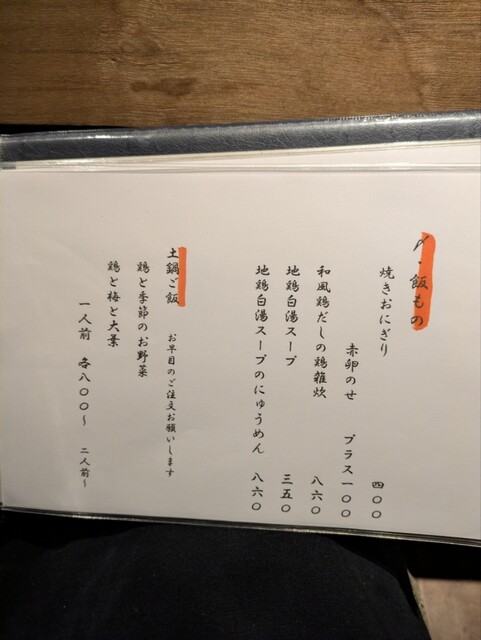 〆・飯もの
焼きおにぎり 四〇〇
赤卵のせ プラス一〇〇
和風鶏だしの鶏雑炊 八六〇
地鶏白湯スープ 三五〇
地鶏白湯スープのにゅうめん 八六〇
土鍋ご飯 お早目のご注文お願いします
鶏と季節のお野菜
鶏と梅と大葉
一人前 各八〇〇〜 二人前〜